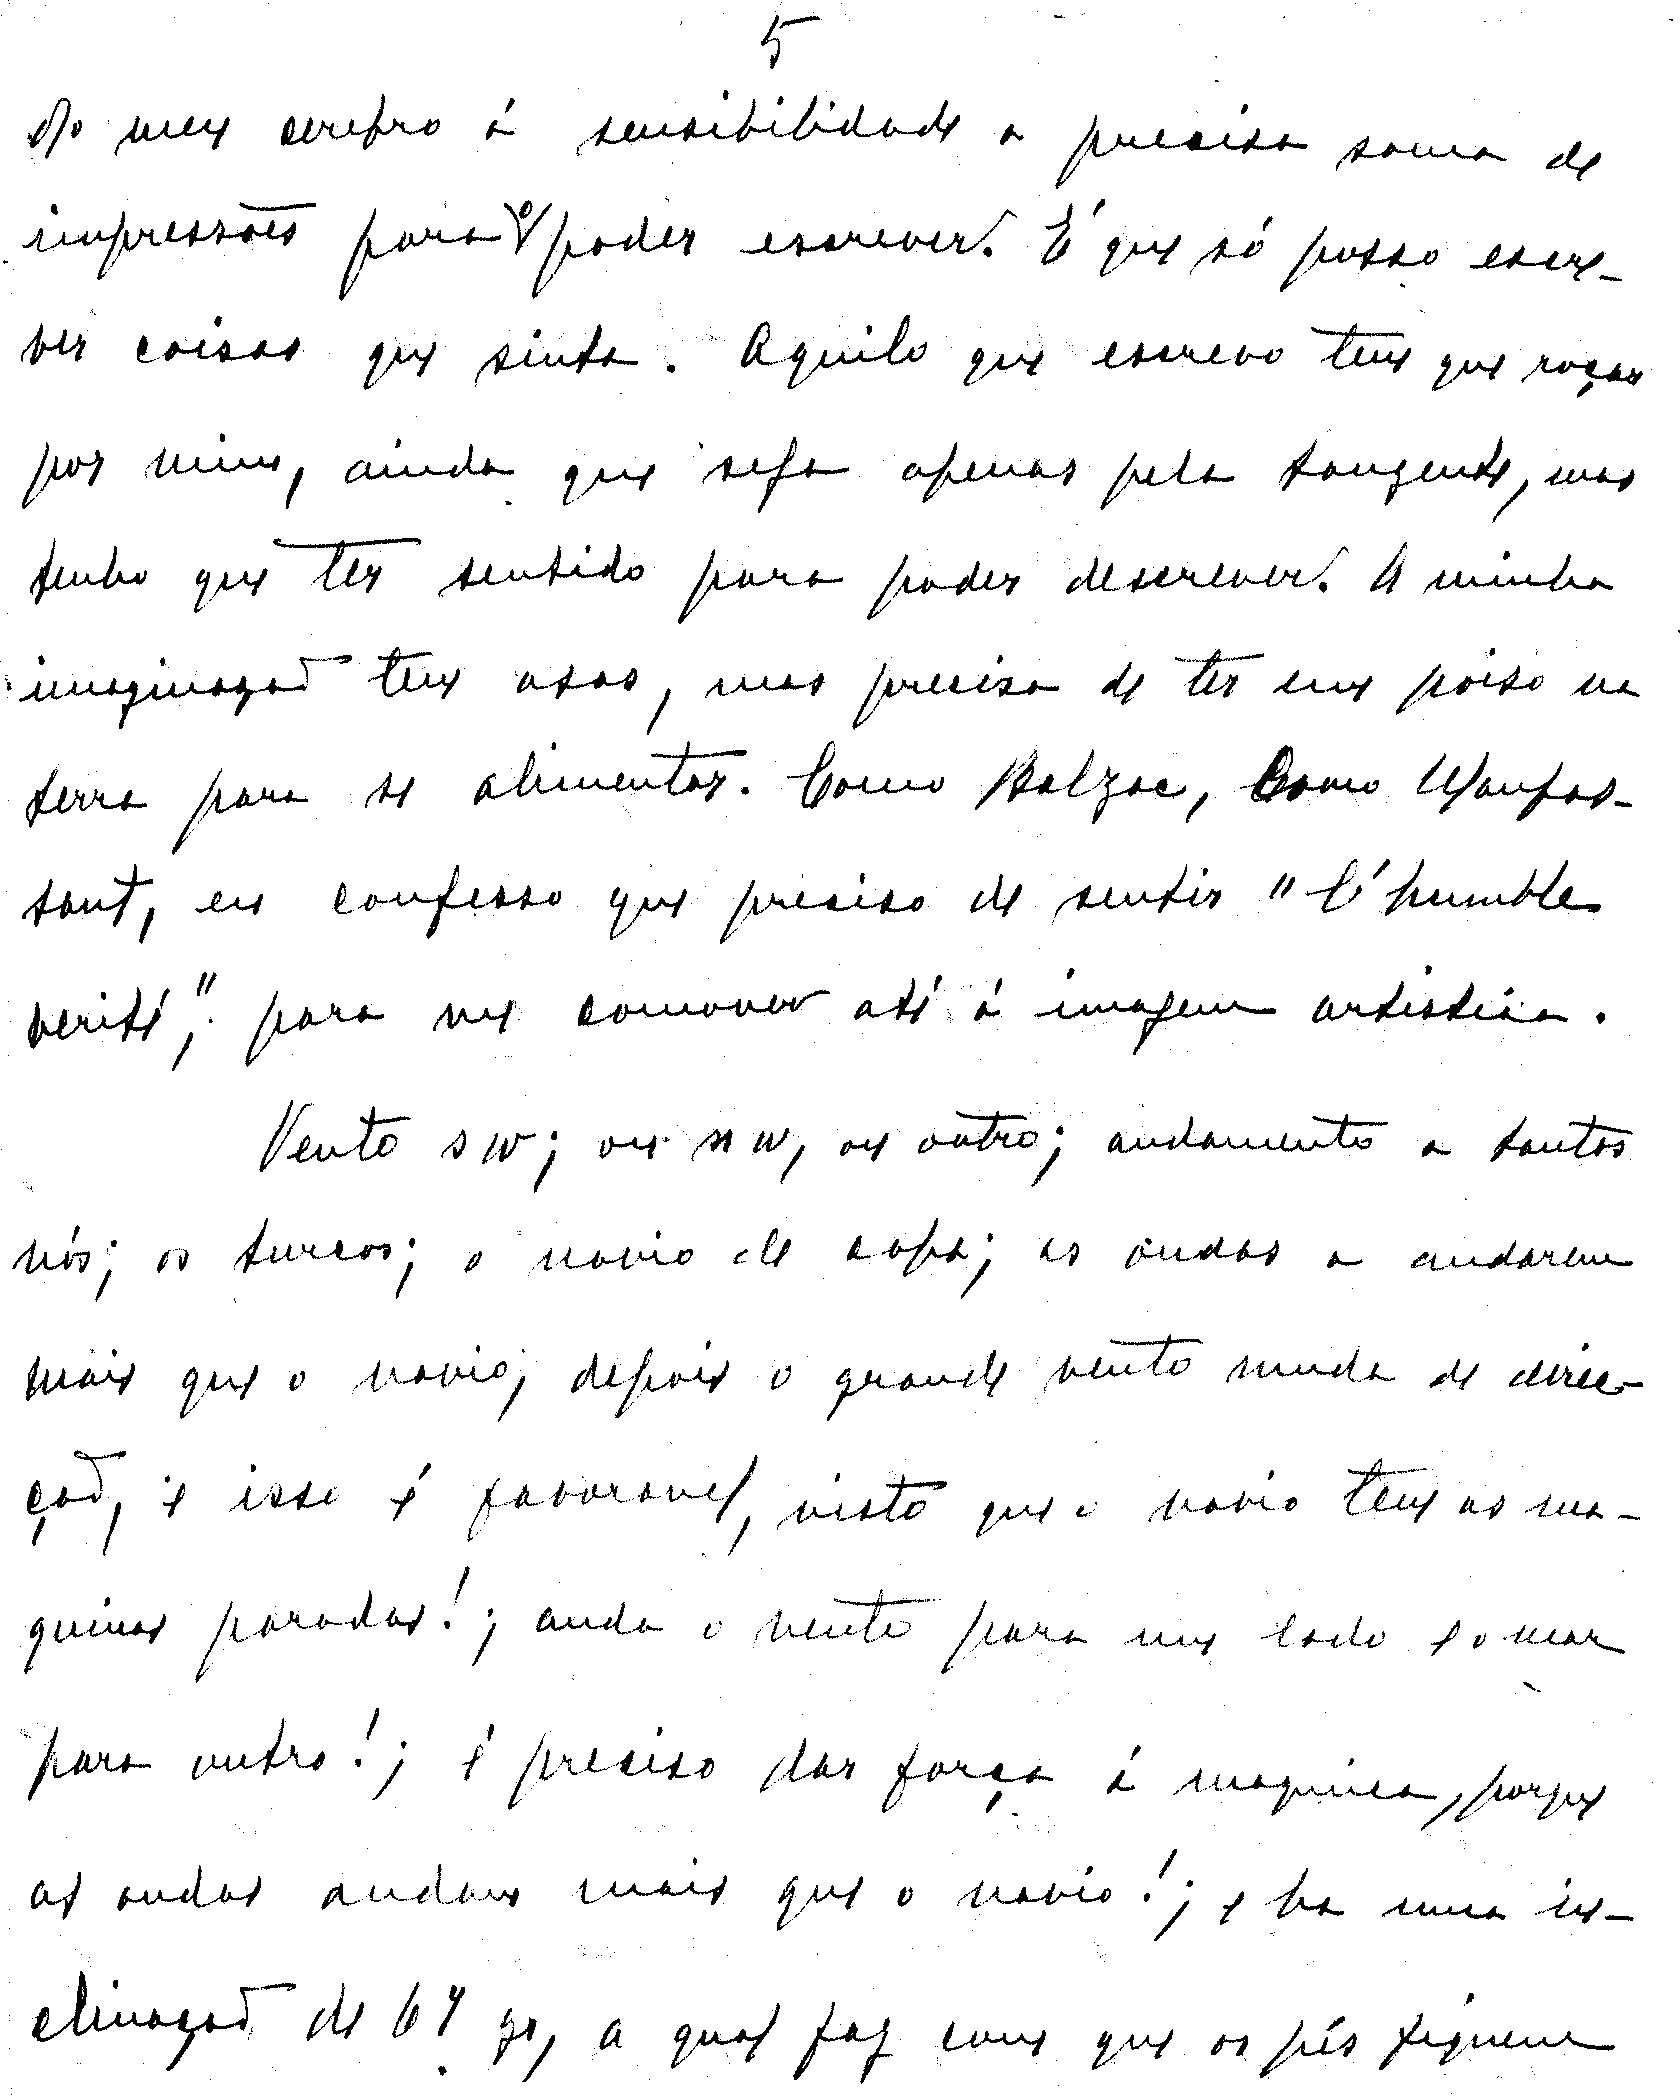 5
do meu cerebro á sensibilidade a precisa soma de
impressões para o poder escrever. É que só posso escre-
ver coisas que sinta. Aquilo que escrevo tem que roçar
por mim, ainda que seja apenas pela tangente, mas
tenho que ter sentido para poder descrever. A minha
imaginação tem asas, mas precisa de ter um poiso na
terra para se alimentar. Como Balzac, Como Maupas-
sant, eu confesso que preciso de sentir "l'humble
verité", para me comover até á imagem artistica.
Vento sw; ou nw, ou outro; andamento a tantos
nós; os turcos; o navio de capa; as ondas a andarem
mais que o navio; depois o grande vento muda de direc-
ção, e isso é favoravel, visto que o navio tem as ma-
quinas paradas!; anda o vento para um lado e o mar
para outro!; é preciso dar força á maquina, porque
as ondas andam mais que o navio!; e ha uma in-
clinação de 64 go, a qual faz com que os pés fiquem